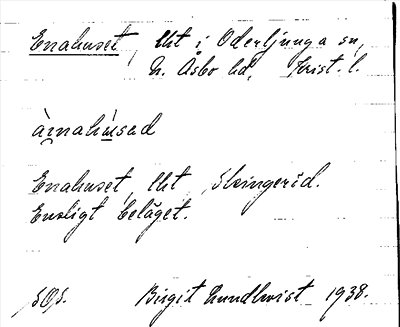 Enahuset, lht i Oderljunga sn,
N. Åsbo hd, Krist. l.
ànahúsad
Enahuset, lht Slingeröd.
Ensligt beläget.
SOS. Birgit Lundkvist 1938.